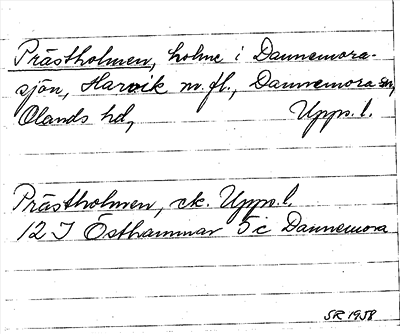 Prästholmen, holme i Dannemora-
sjön, Harvik m.fl., Dannemora sn,
Olands hd, Upps. l.
Prästholmen, ek. Upps. l.
12 I Östhammar 5 c Dannemora
SR 1958